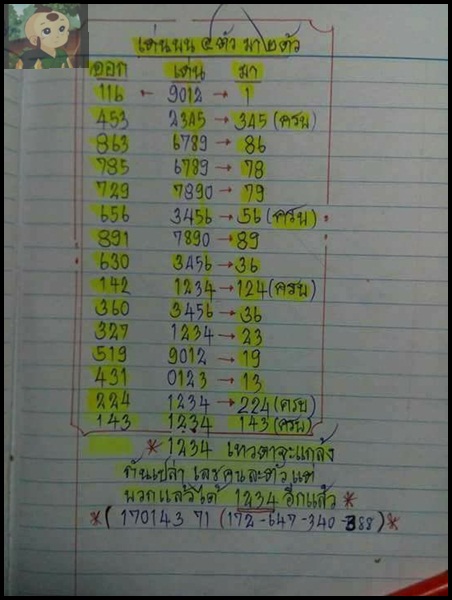 เด่นบน ๔ ตัว มา ๒ ตัว
ออก เด่น มา
116 ← 9012 → 1
453 2345 → 345 (ครบ)
863 6789 → 86
785 6789 → 78
729 7890 → 79
656 3456 → 56 (ครบ)
891 7890 → 89
630 3456 → 36
142 1234 → 124 (ครบ)
360 3456 → 36
327 1234 → 23
519 9012 → 19
431 0123 → 13
224 1234 → 224 (ครบ)
143 1234 143 (ครบ)
* 1234 เทวดาจะแกล้ง
กันเปล่า เลขคนละตัว แต่
บวกแล้วได้ 1234 อีกแล้ว *
* ( 170143 71 (172 - 647 - 340 - 388 ) *